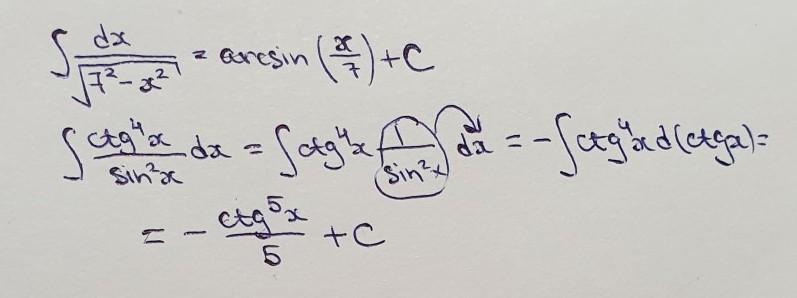 ∫ dx/√(7² - x²) = arcsin (x/7) + C
∫ ctg⁴x/sin²x dx = ∫ ctg⁴x (1/sin²x) dx = -∫ ctg⁴x d(ctgx) =
= - ctg⁵x/5 + C